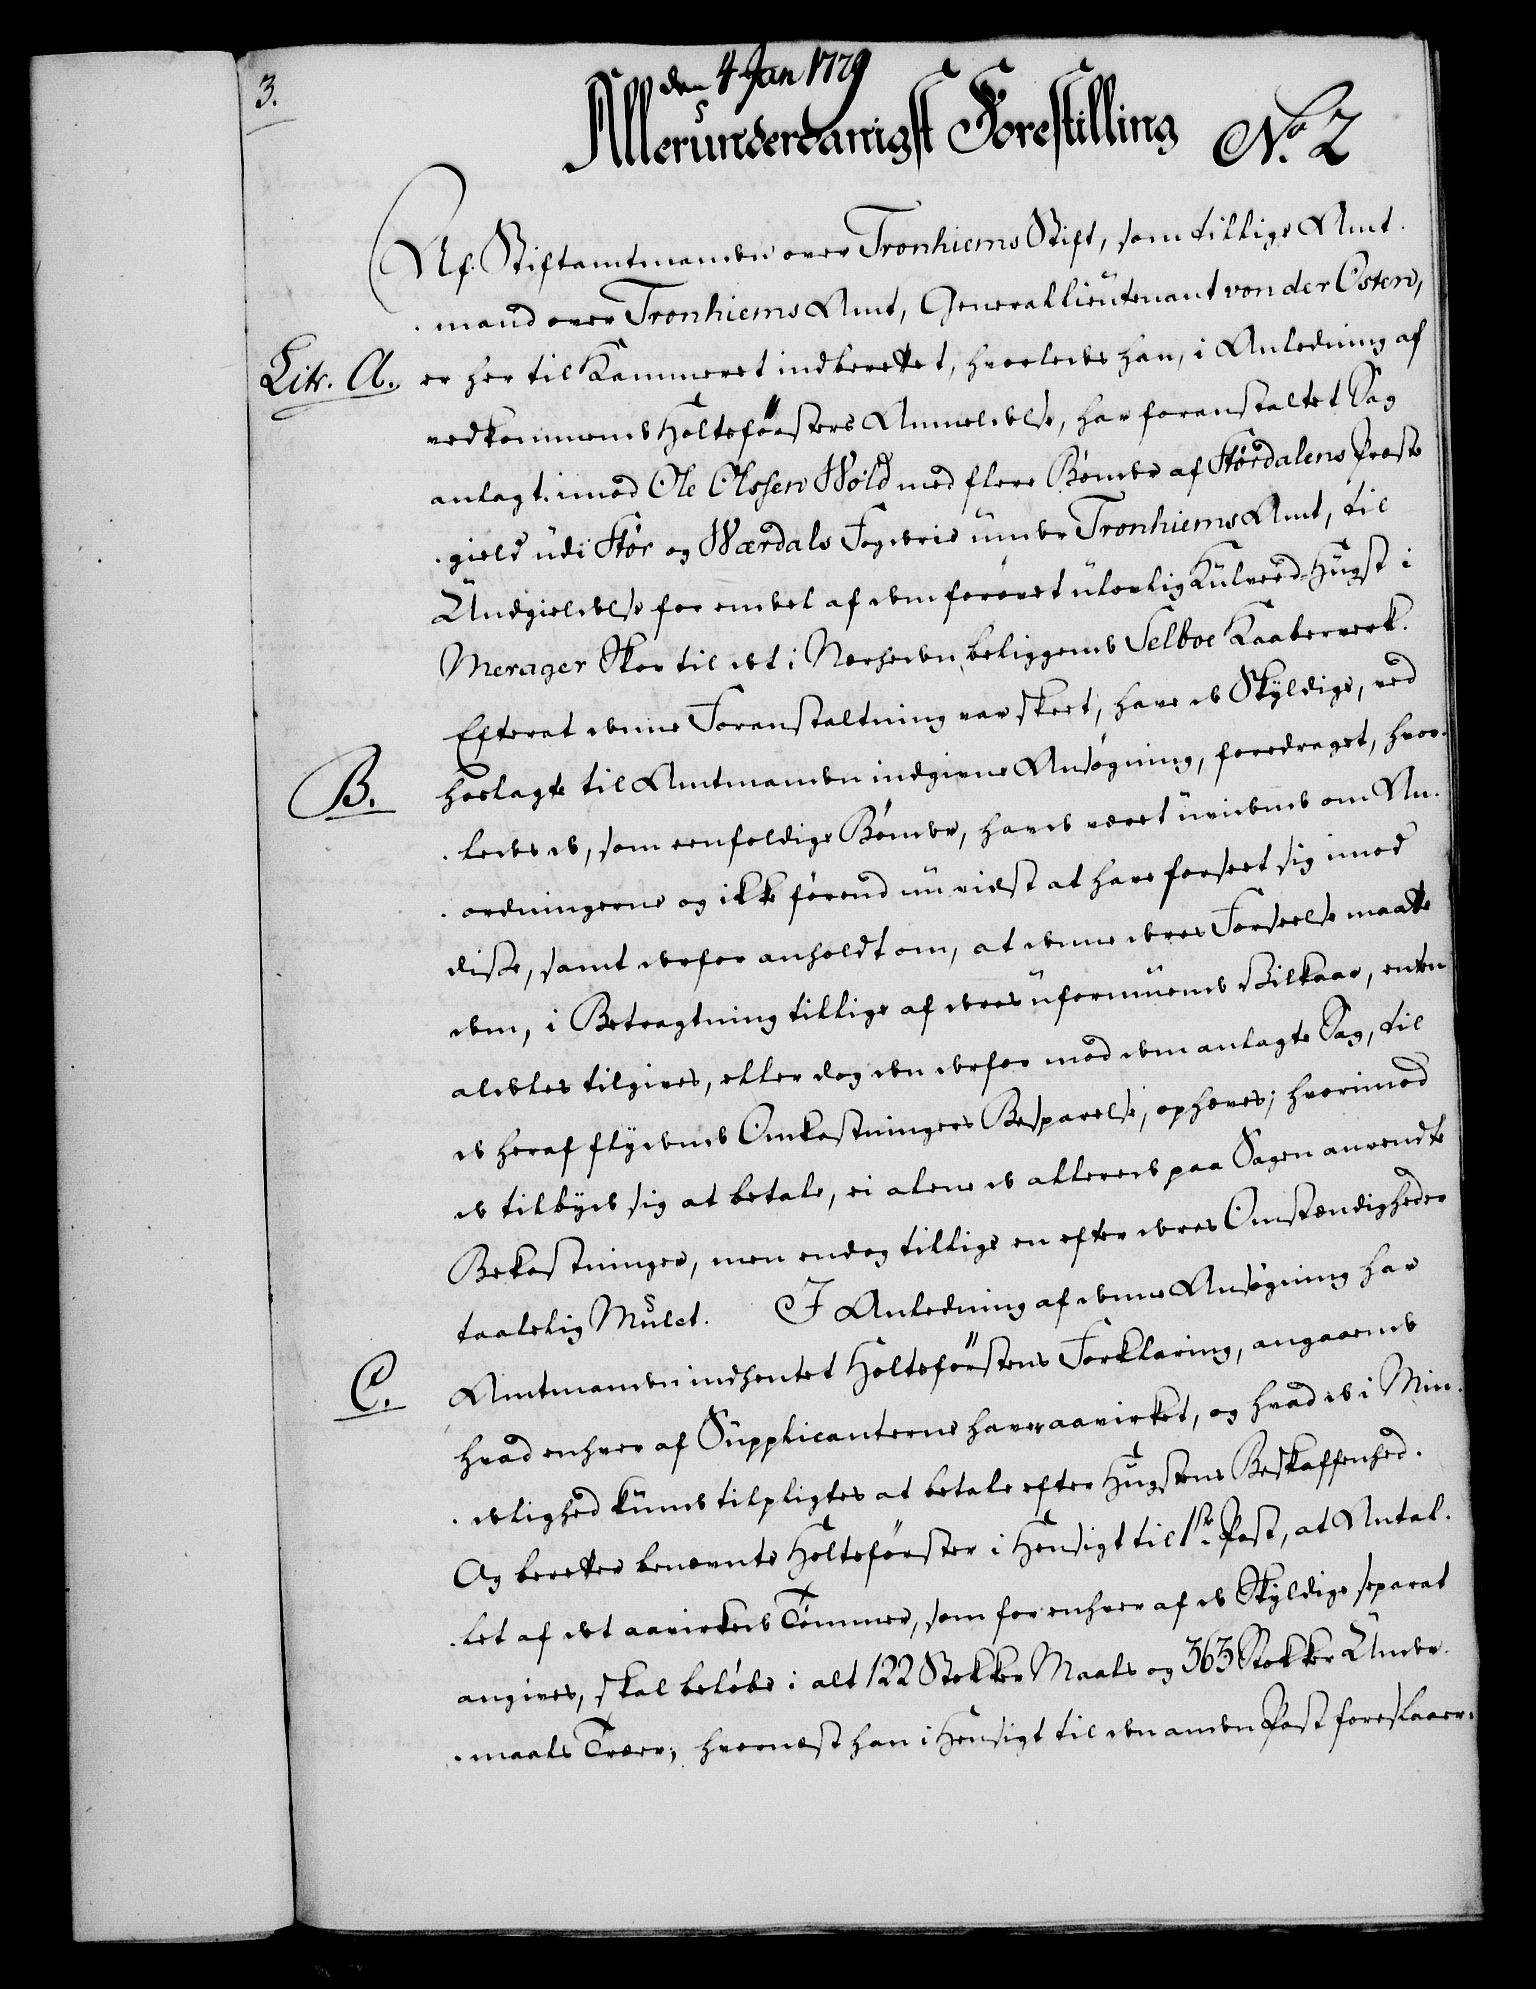 3.
den 4 Jan 1779
Allerunderdanigst Forestilling No. 2
Af Stiftamtmanden over Tronhiems Stift, som tillige Amt-
mand over Tronhiems Amt, Generallieutenant von der Osten,
Litr. A. er her til Kammeret indberettet, hvorledes han, i Anledning af
vedkommende Holtsförsters Anmeldelse, har foranstaltet Sag
anlagt imod Ole Olssen Wold med flere Bönder af Stördalens Præste
gield udi Stör og Wærdals Fogderie under Tronhiems Amt, til
Undgieldelse for endeel af dem forövet ulovlig Kulved-Hugst i
Merager Skov til det i Nærheden beliggende Selboe Kaaberverk.
Efterat denne Foranstaltning var skeet, have de Skyldige, ved
B. hoslagte til Amtmanden indgivne Ansögning, foredraget, hvor-
ledes de, som eenfoldige Bönder, havde været uvidende om An-
ordningerne og ikke förend nu vidst at have forseet sig imod
disse, samt derfor anholdt om, at denne deres Forseelse maatte
dem, i Betragtning tillige af deres uformuende Vilkaar, enten
aldeles tilgives, eller dog den derfor mod dem anlagte Sag, til
de heraf flydende Omkostningers Besparelse, ophæves; hvorimod
de tilbyde sig at betale, ei alene de allerede paa Sagen anvendte
Bekostninger, men endog tillige en efter deres Omstændigheder
taalelig Mulct. I Anledning af denne Ansögning har
C. Amtmanden indhentet Holtsförstens Forklaring, angaaende
hvad enhver af Supplicanterne haver aavirket, og hvad de i Min-
delighed kunde tilpligtes at betale efter Hugstens Beskaffenhed.
Og beretter benævnte Holtsförster i Hensigt til 1ste Post, at Antal-
let af det aavirkede Tömmer, som for enhver af de Skyldige separat
angives, skal belöbe i alt 122 Stokker Maals og 363 Stokker Under-
maals Træer; hvornæst han i Hensigt til den anden Post foreslaaer.